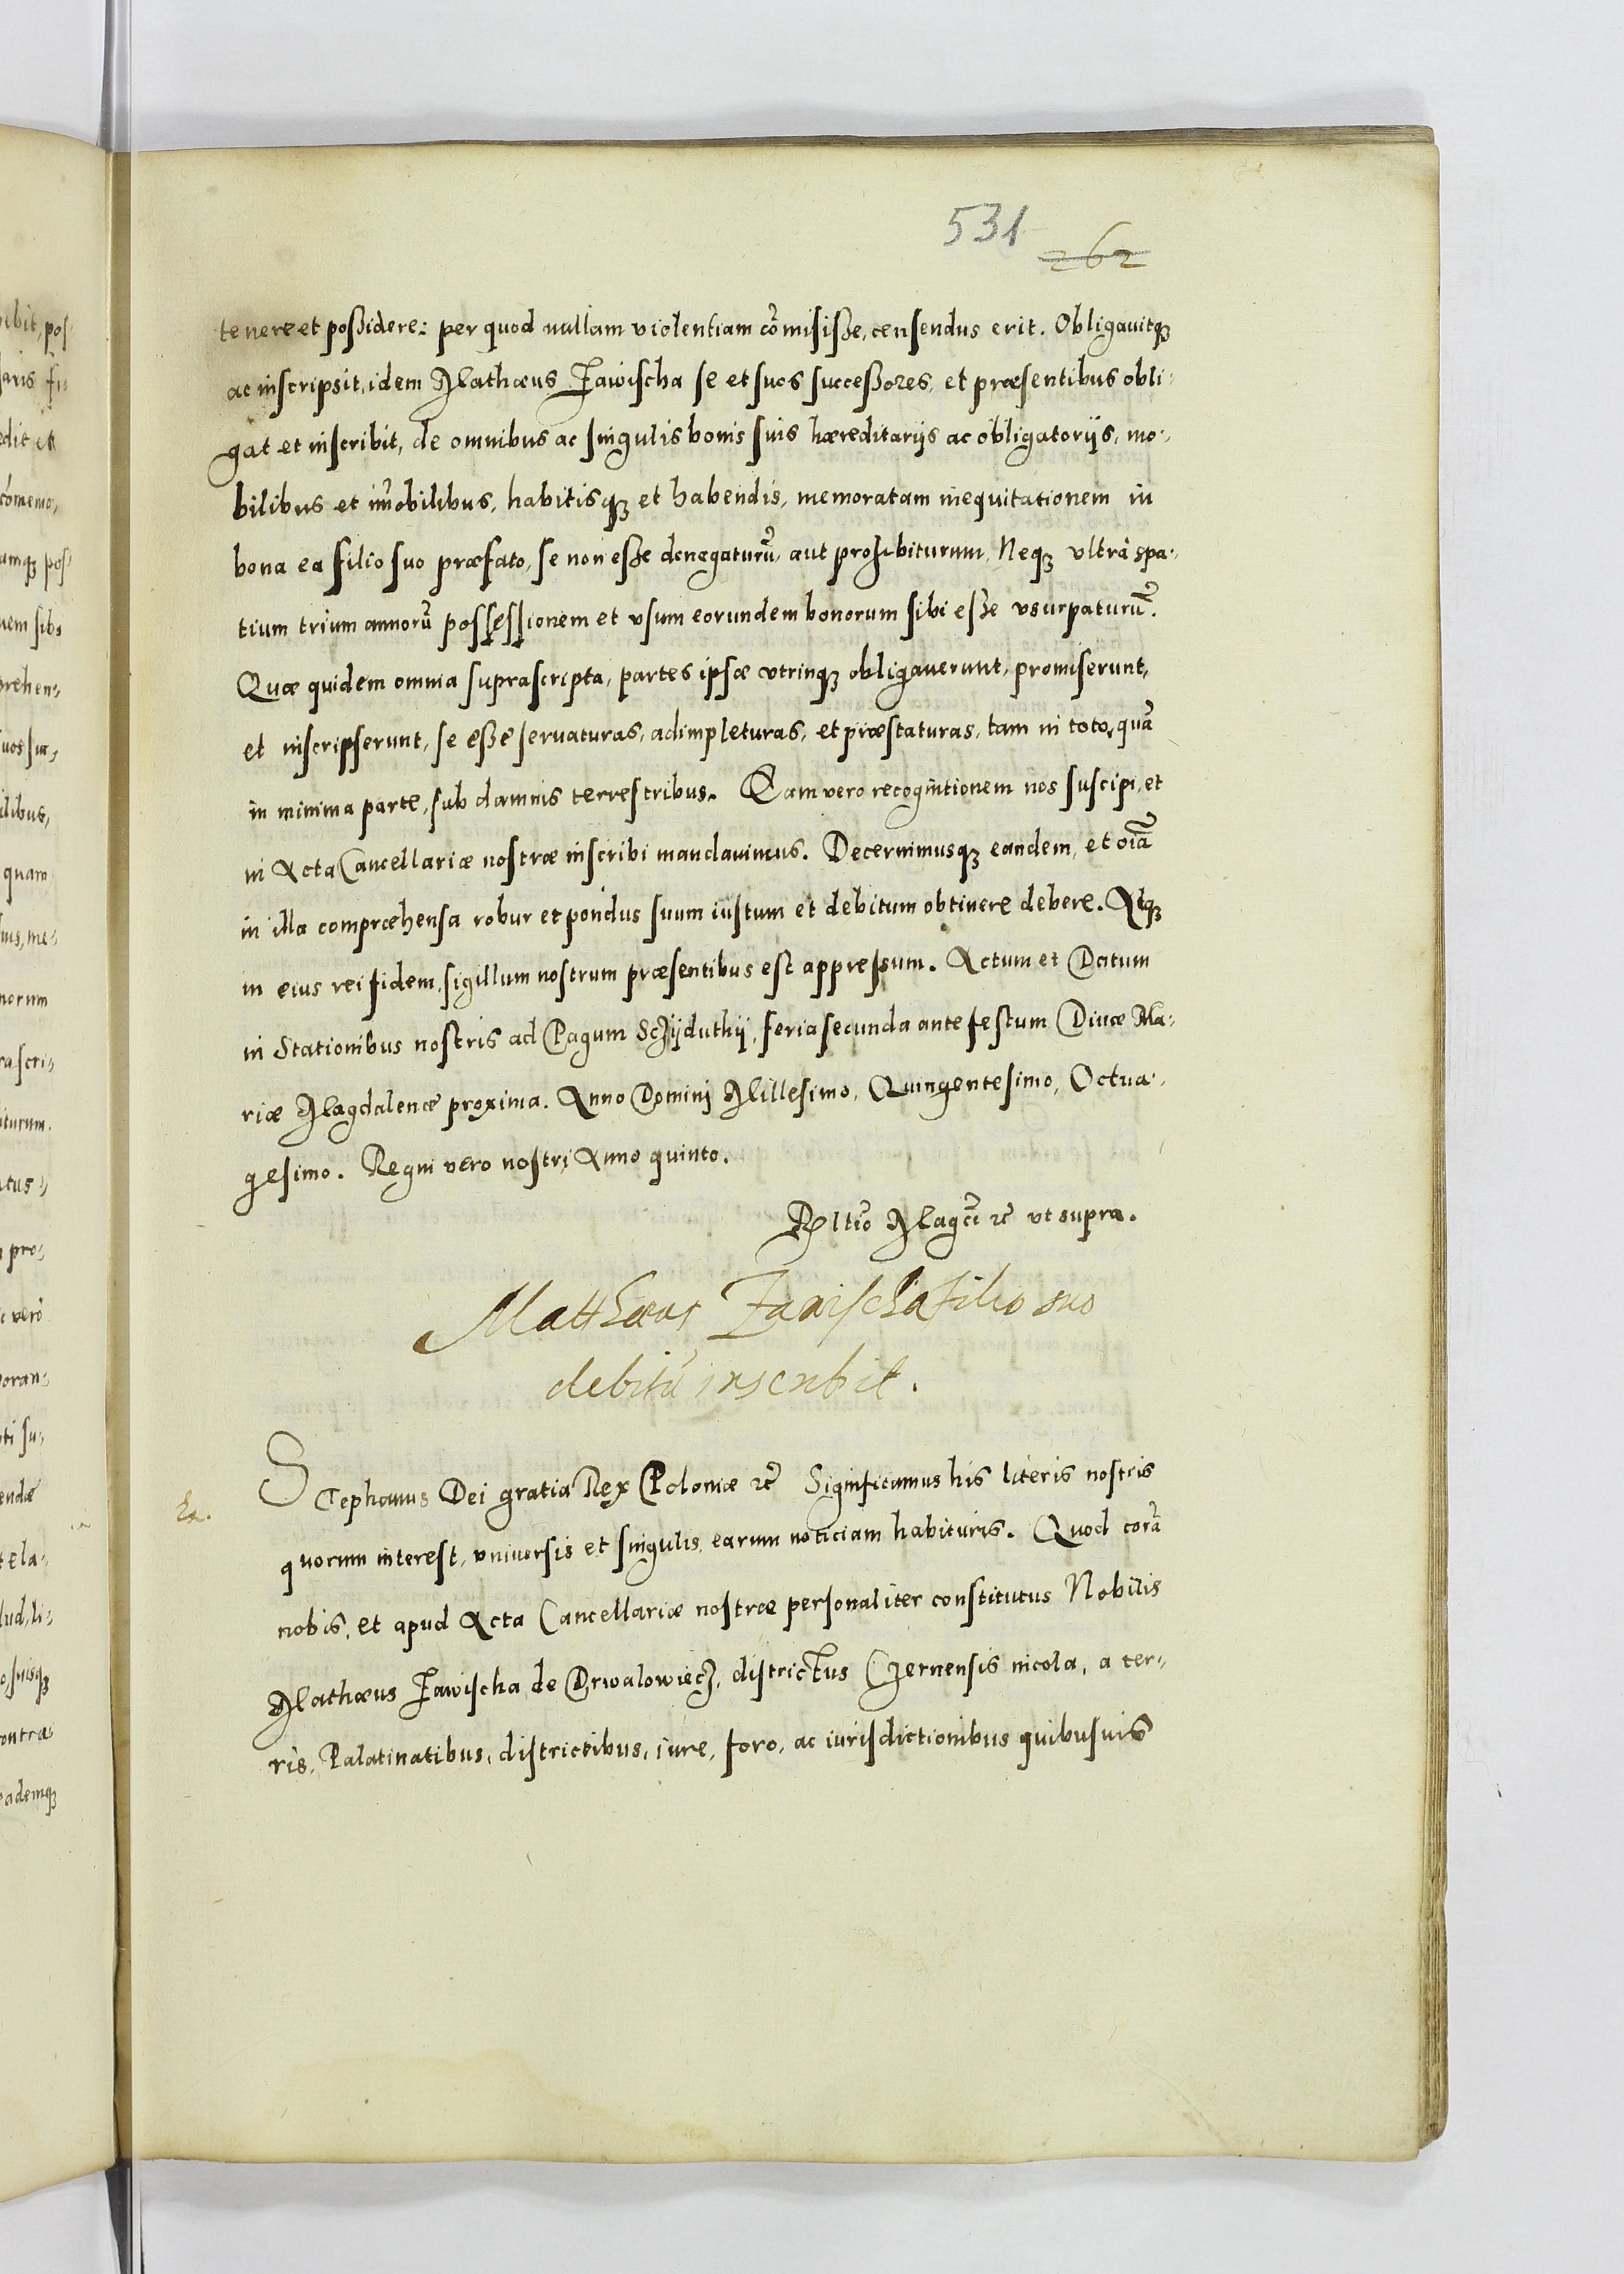 531
262
tenere et possidere: per quod nullam violentiam cõmisisse, censendus erit. Obligauitq₃
ac inscripsit, idem Mathæus Zawischa se et suos successores, et præsentibus obli-
gat et inscribit, de omnibus ac singulis bonis suis hæreditarijs ac obligatorijs, mo-
bilibus et im̃obilibus, habitisq₃ et habendis, memoratam inequitationem in
bona ea filio suo præfato, se non esse denegaturũ, aut prohibiturum, Neq₃ vltrà spa-
tium trium annorũ possessionem et vsum eorundem bonorum sibi esse vsurpaturũ.
Quæ quidem omnia suprascripta, partes ipsæ vtrinq₃ obligauerunt, promiserunt,
et inscripserunt, se esse seruaturas, adimpleturas, et præstaturas, tam in toto, quã
in minima parte, sub damnis terrestribus. Eam vero recognitionem nos suscipi, et
in Acta Cancellariæ nostræ inscribi mandauimus. Decernimusq₃ eandem, et oĩa
in illa compræhensa robur et pondus suum iustum et debitum obtinere debere. Atq₃
in eius rei fidem, sigillum nostrum præsentibus est appressum. Actum et Datum
in Stationibus nostris ad Pagum Schÿduthÿ, feria secunda ante festum Diuæ Ma-
riæ Magdalenæ proxima. Anno Domini Millesimo, Quingentesimo, Octua-
gesimo. Regni vero nostri Anno quinto.
Rltio Magci ꝛc̃ vt supra.
Matthæus Zawischa filio suo
debitũ inscribit.
Stephanus Dei gratia Rex Poloniæ ꝛc̃ Significamus his literis nostris
quorum interest, vniuersis et singulis, earum noticiam habituris. Quod corã
nobis, et apud Acta Cancellariæ nostræ personaliter constitutus Nobilis
Mathæus Zawischa de Drwalowiecz, districtus Czernensis incola, a ter-
ris, Palatinatibus, districtibus, iure, foro, ac iurisdictionibus quibusuis